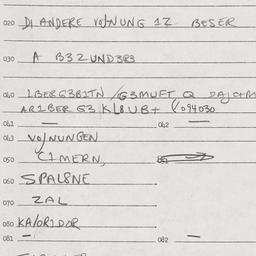 020 DI ANDERE VOJNUNG 1Z BESER
030 A B3Z UND3R3
040 1BER G3B1TN /G3MUFT Q DAJCTM
AR1BER G3 KL8UBT (094030
041 — 042 —
043 VOJNUNGEN
050 C1MERN,
060 SPAL8NE
070 ZAL
080 KA/OR1DOR
081 — 082 —